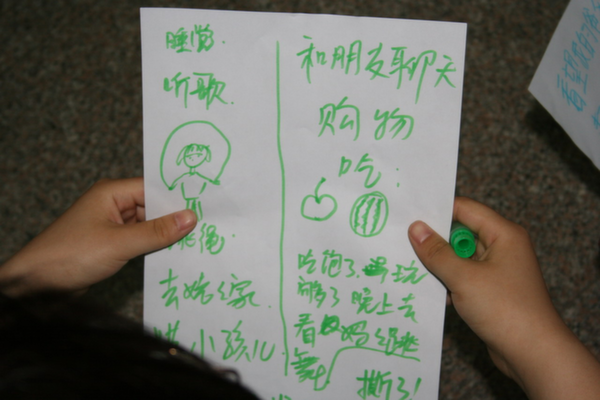 睡觉.
听歌.
跳绳
去姥姥家.
小孩儿
和朋友聊天
购物
吃:
吃饱了. 玩
够了 晚上去
看 妈 跳
舞
撕了!